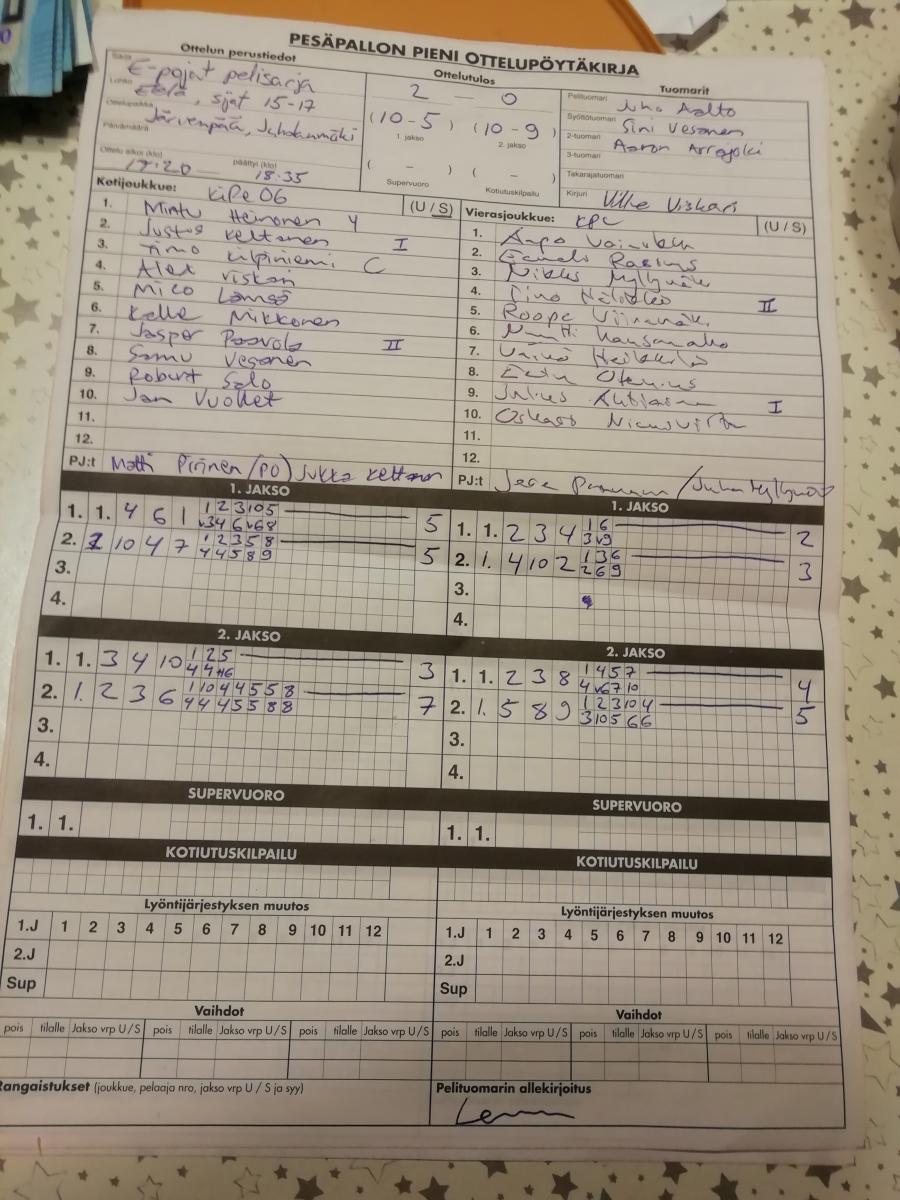 PESÄPALLON PIENI OTTELUPÖYTÄKIRJA
Ottelun perustiedot
Sarja E-pojat pelisarja
Lohko Etelä, sijat 15-17
Ottelupaikka Järvenpää, Juholanmäki
Päivämäärä
Ottelu alkoi (klo) 17.20 päättyi (klo) 18.35
Ottelutulos
2 — 0
(10-5) (10-9)
1. jakso 2. jakso
( - ) ( - )
Supervuoro Kotiutuskilpailu
Tuomarit
Pelituomari Juho Aalto
Syöttötuomari Sini Vesanen
2-tuomari Aaron Arrajoki
3-tuomari
Takarajatuomari
Kirjuri Ville Viskari
Kotijoukkue: KiPe 06 (U / S)
1. Minttu Heinonen 4
2. Justus Keltanen I
3. Timo Kilpiniemi C
4. Alex Viskari
5. Mico Lämsä
6. Kalle Mikkonen
7. Jasper Paavola II
8. Samu Vesanen
9. Robert Salo
10. Jan Vuollet
11.
12.
PJ:t Matti Pirinen (PO) Jukka Keltanen
Vierasjoukkue: KPL (U / S)
1.
2.
3. Niklas Myllymäki
4. Timo II
5. Roope Viinamäki
6.
7. Väinö Heikkilä
8.
9. Julius I
10.
11.
12.
PJ:t / Juha Myllymäki
1. JAKSO
1. 1. 4 6 1 1 2 3 10 5 5
v3 4 6 v6 8
2. 1 10 4 7 1 2 3 5 8 5
4 4 5 8 9
3.
4.
1. JAKSO
1. 1. 2 3 4 1 6 2
3 v9
2. 1. 4 10 2 1 3 6 3
2 6 9
3.
4.
2. JAKSO
1. 1. 3 4 10 1 2 5 3
4 4 6
2. 1. 2 3 6 1 10 4 4 5 5 8 7
4 4 4 5 5 8 8
3.
4.
2. JAKSO
1. 1. 2 3 8 1 4 5 7 4
4 v6 7 10
2. 1. 5 8 9 1 2 3 10 4 5
3 10 5 6 6
3.
4.
SUPERVUORO
1. 1.
SUPERVUORO
1. 1.
KOTIUTUSKILPAILU
KOTIUTUSKILPAILU
Lyöntijärjestyksen muutos
1.J 1 2 3 4 5 6 7 8 9 10 11 12
2.J
Sup
Lyöntijärjestyksen muutos
1.J 1 2 3 4 5 6 7 8 9 10 11 12
2.J
Sup
Vaihdot
pois tilalle Jakso vrp U / S pois tilalle Jakso vrp U / S pois tilalle Jakso vrp U / S
Vaihdot
pois tilalle Jakso vrp U / S pois tilalle Jakso vrp U / S pois tilalle Jakso vrp U / S
Rangaistukset (joukkue, pelaaja nro, jakso vrp U / S ja syy)
Pelituomarin allekirjoitus